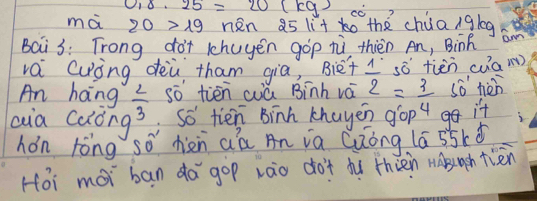 0,8 . 25 = 20 (kg)
mà 20 > 19 nên 25 lít ko có thể chứa 19kg
Bài 3: Trong đợt khuyên góp từ thiện An, Bình
và Cường đều tham gia, Biết 1/2 số tiền của
An bằng 2/3 số tiền của Bình và = 3/4 số tiền
của Cường. Số tiền Bình khuyên góp ít
hơn tổng số tiền của An và Cường là 55k đ
Hỏi mỗi bạn đã góp vào đợt từ thiện tiền